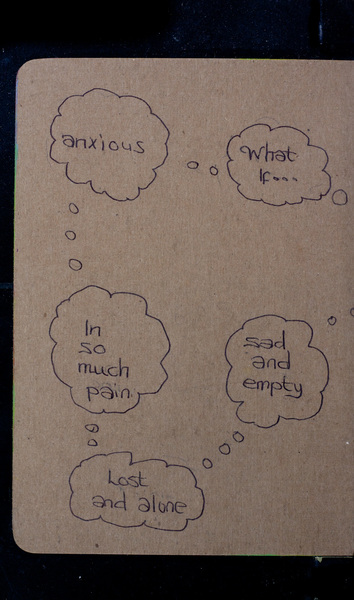 anxious
What
If...
In
so
much
pain
sad
and
empty
Lost
and alone